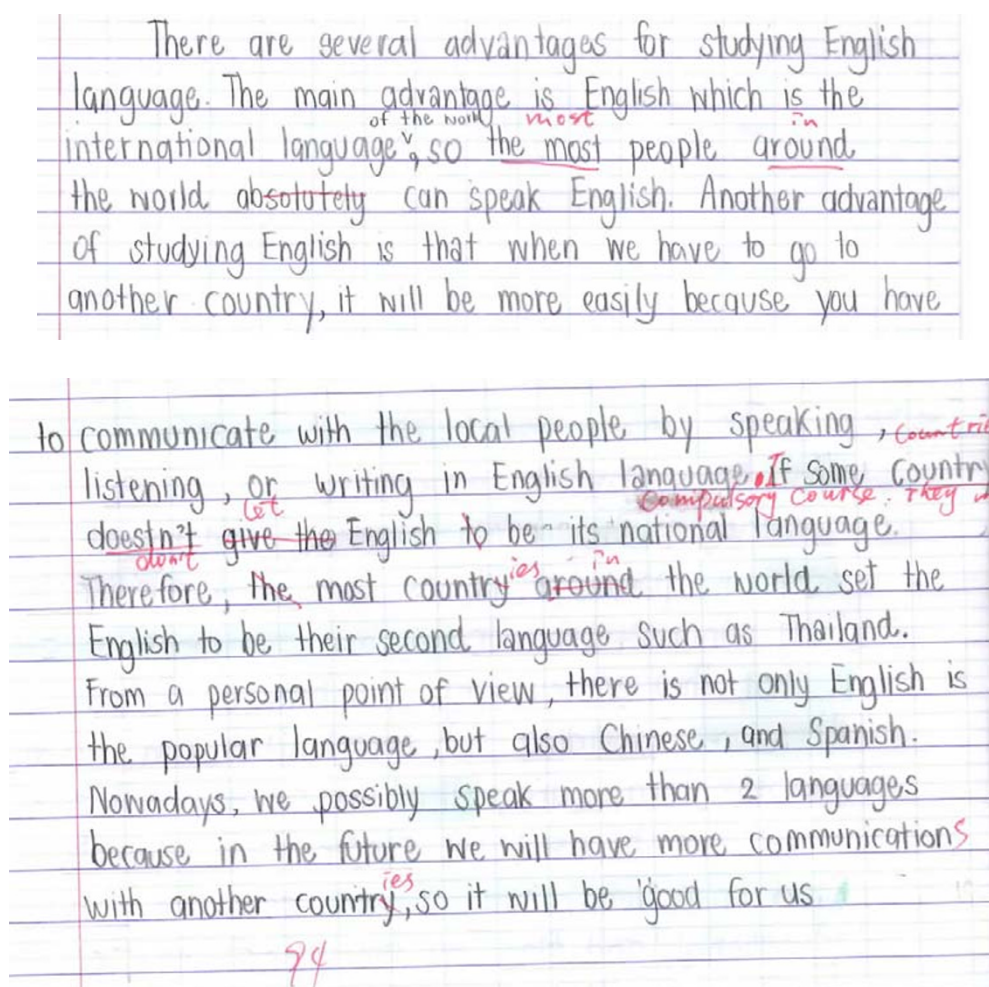 There are several advantages for studying English
language. The main advantage is English which is the
of the world most in
international language, so the most people around
the world absolutely can speak English. Another advantage
of studying English is that when we have to go to
another country, it will be more easily because you have
to communicate with the local people by speaking, countri
listening, or writing in English language. If some country
let compulsory course. They
doestn't give the English to be its national language.
don't ies in
Therefore, the most country around the world set the
English to be their second language such as Thailand.
From a personal point of view, there is not only English is
the popular language, but also Chinese, and Spanish.
Nowadays, we possibly speak more than 2 languages
because in the future we will have more communications
ies
with another country, so it will be good for us
94